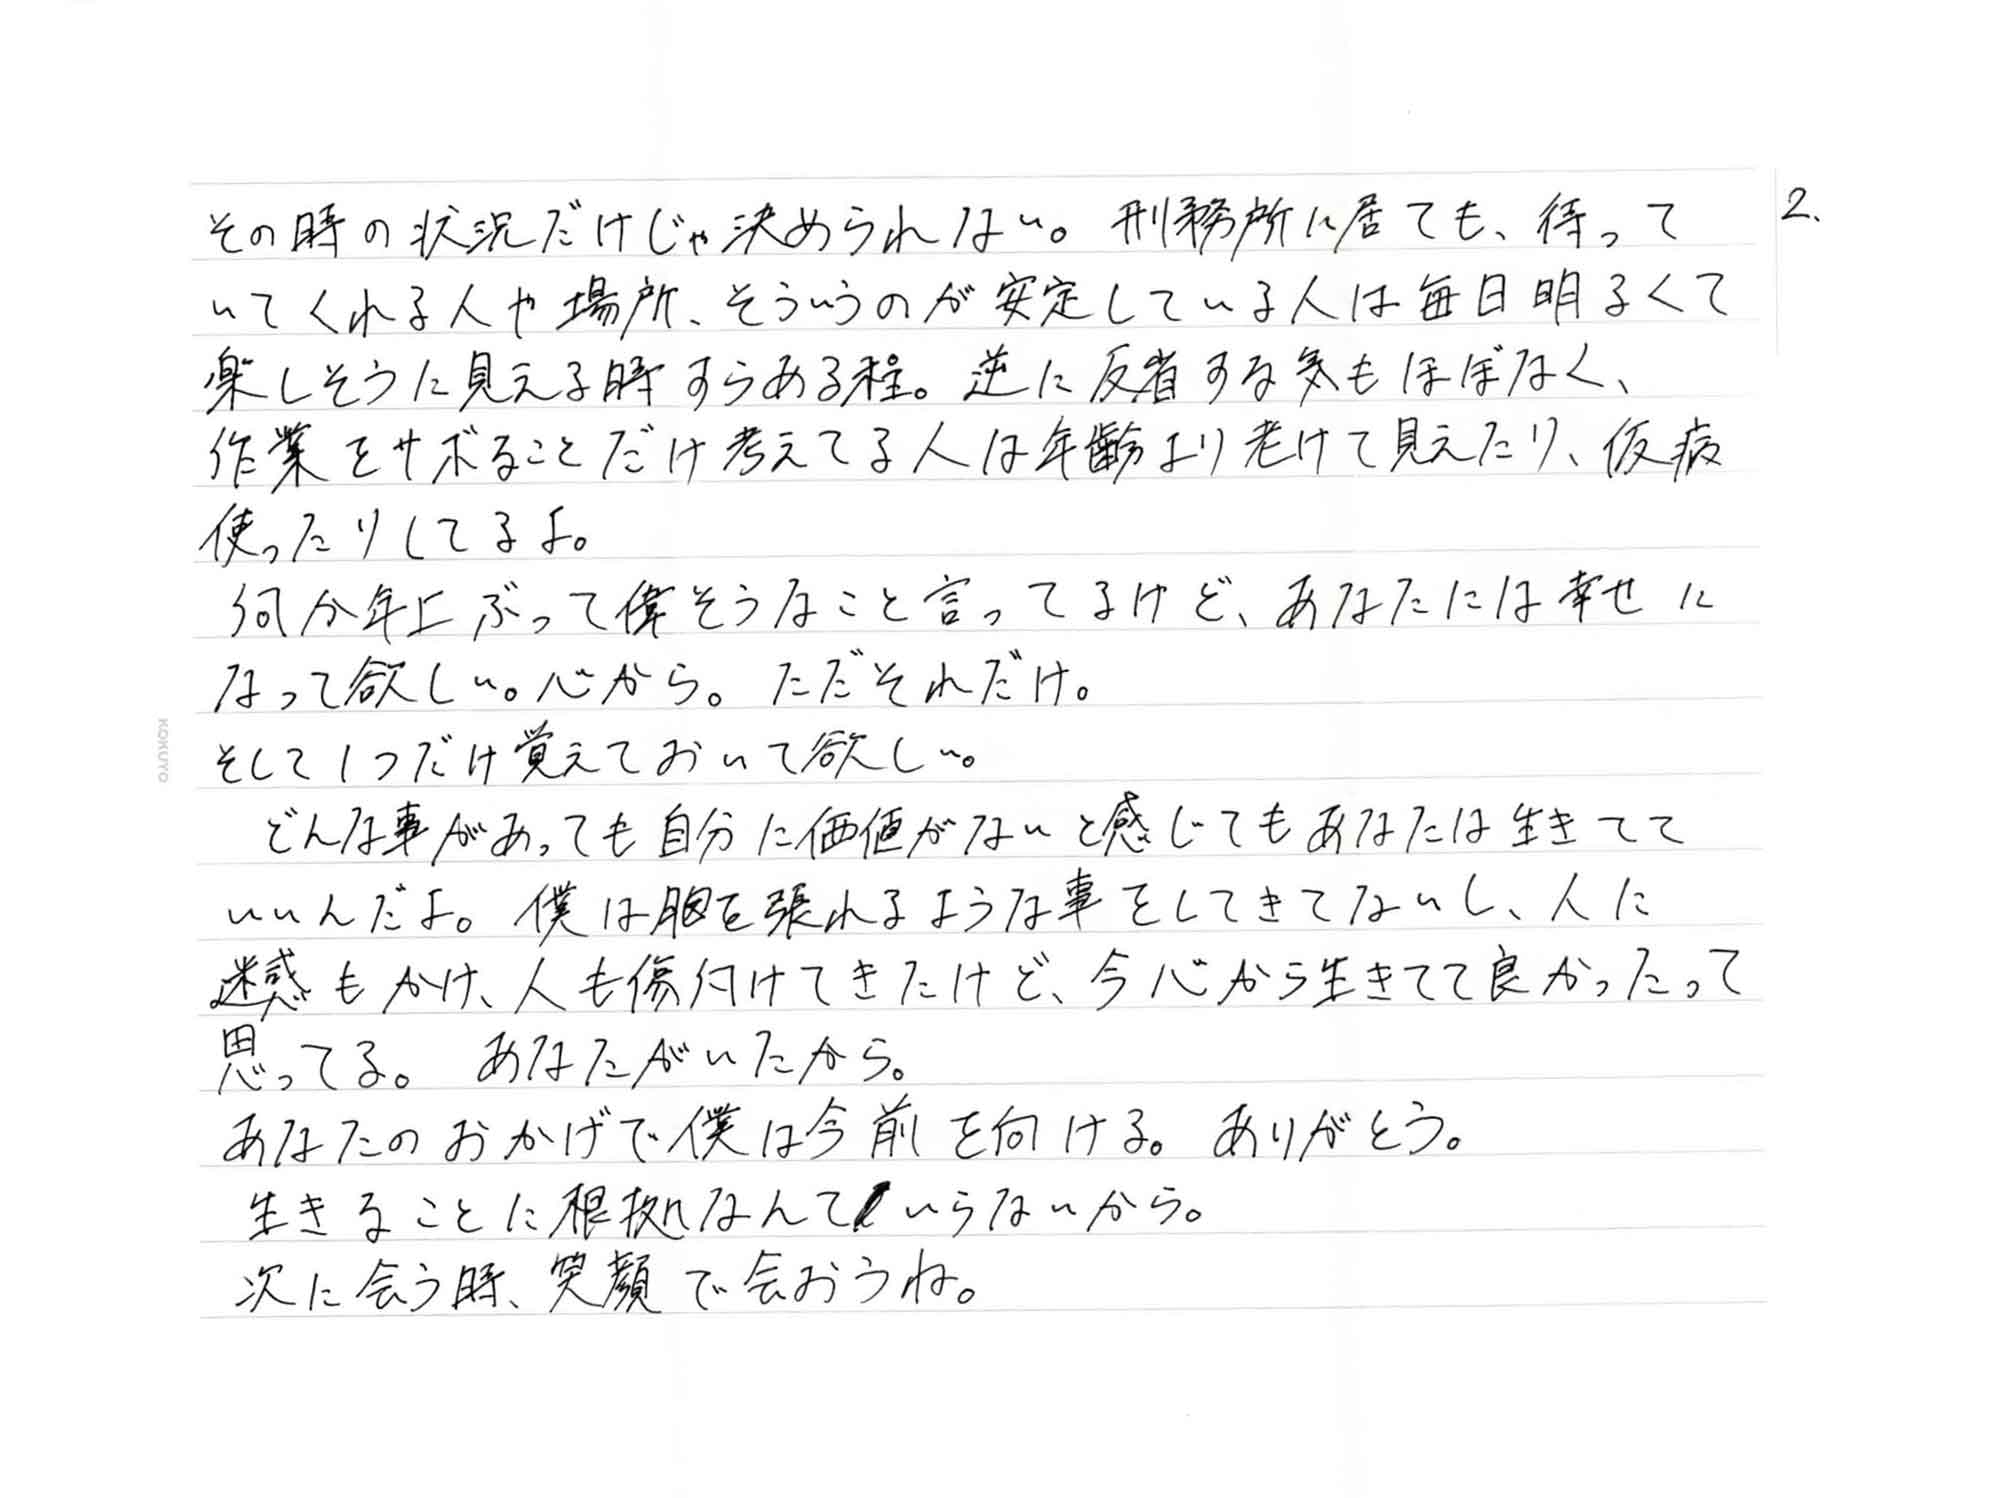 2.
その時の状況だけじゃ決められない。刑務所に居ても、待って
いてくれる人や場所、そういうのが安定している人は毎日明るくて
楽しそうに見える時すらある程。逆に反省する気もほぼなく、
作業をサボることだけ考えてる人は年齢より老けて見えたり、仮病
使ったりしてるよ。
何か年上ぶって偉そうなこと言ってるけど、あなたには幸せに
なって欲しい。心から。ただそれだけ。
そして1つだけ覚えておいて欲しい。
どんな事があっても自分に価値がないと感じてもあなたは生きてて
いいんだよ。僕は胸を張れるような事をしてきてないし、人に
迷惑もかけ、人も傷付けてきたけど、今心から生きてて良かったって
思ってる。あなたがいたから。
あなたのおかげで僕は今前を向ける。ありがとう。
生きることに根拠なんていらないから。
次に会う時、笑顔で会おうね。
KOKUYO